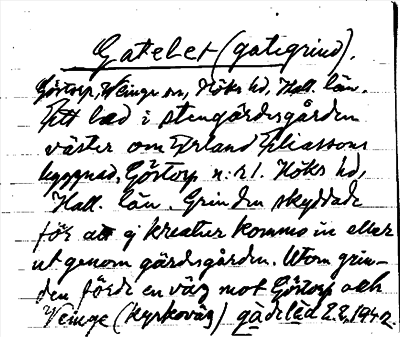 Gatelet (gatigrind).
Göstorp, Veinge sn, Höks hd, Hall. län.
Ett led i stengärdesgården
väster om Erland Eliassons
byggnad, Göstorp n:r 1. Höks hd,
Hall. län. Grinden skyddade
för att ej kreatur kommo in eller
ut genom gärdsgården. Utom grin-
den förde en väg mot Göstorp och
Veinge (kyrkoväg) gådeläd 2.2.1942.